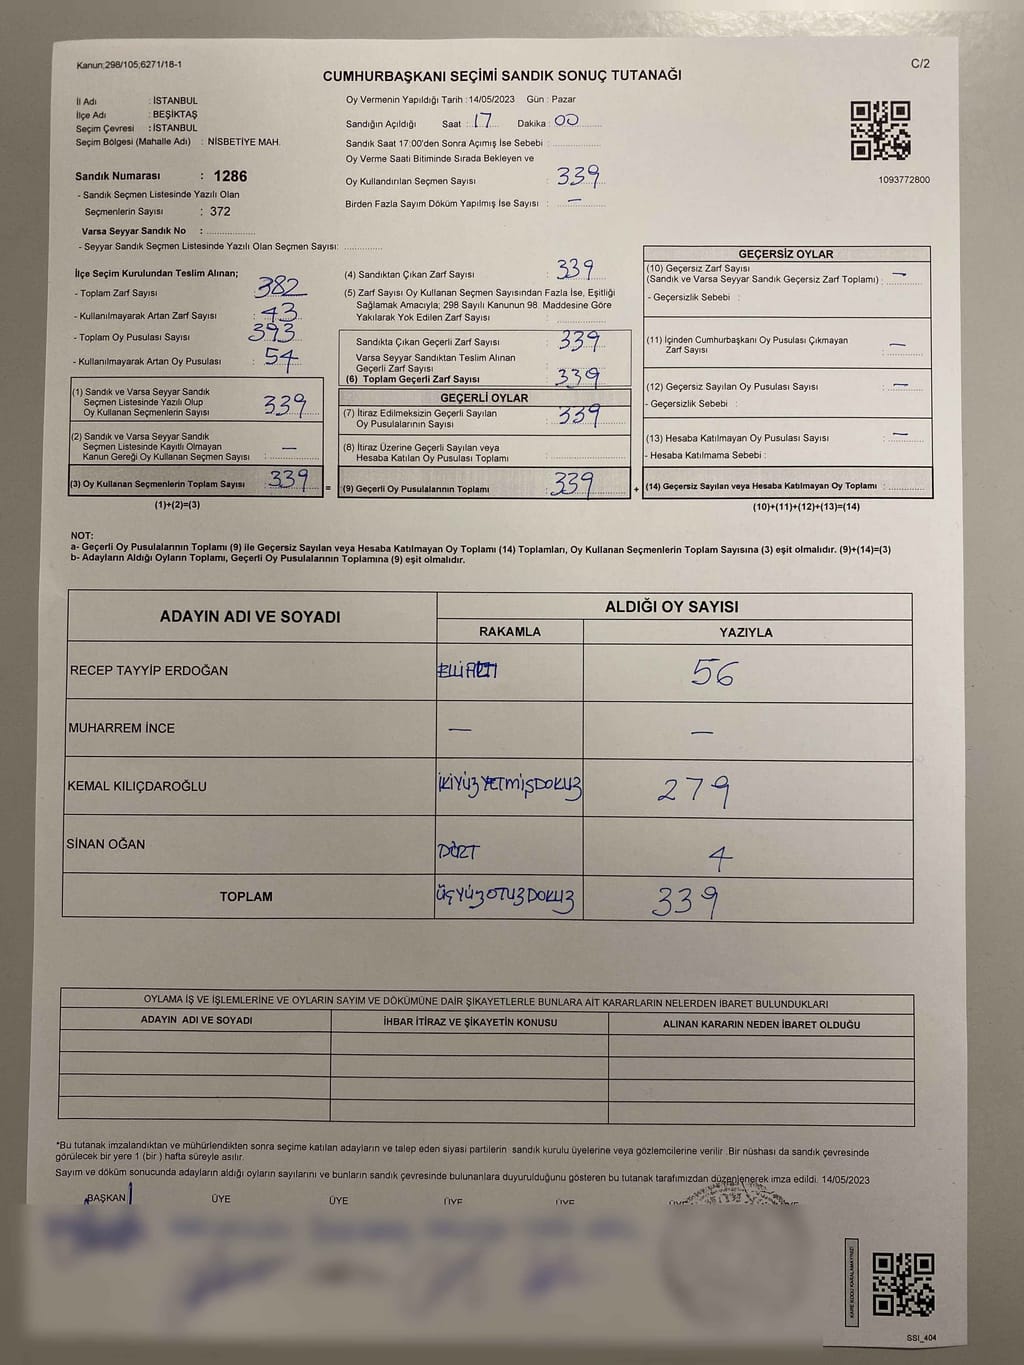 Kanun;298/105,6271/18-1
C/2
CUMHURBAŞKANI SEÇİMİ SANDIK SONUÇ TUTANAĞI
İl Adı : İSTANBUL
İlçe Adı : BEŞİKTAŞ
Seçim Çevresi : İSTANBUL
Seçim Bölgesi (Mahalle Adı) : NİSBETİYE MAH.
Oy Vermenin Yapıldığı Tarih :14/05/2023 Gün : Pazar
Sandığın Açıldığı Saat : 17 Dakika : 00
Sandık Saat 17:00'den Sonra Açımış İse Sebebi :
Oy Verme Saati Bitiminde Sırada Bekleyen ve
Oy Kullandırılan Seçmen Sayısı : 339
Birden Fazla Sayım Döküm Yapılmış İse Sayısı : —
1093772800
Sandık Numarası : 1286
- Sandık Seçmen Listesinde Yazılı Olan
Seçmenlerin Sayısı : 372
Varsa Seyyar Sandık No :
- Seyyar Sandık Seçmen Listesinde Yazılı Olan Seçmen Sayısı:
İlçe Seçim Kurulundan Teslim Alınan;
- Toplam Zarf Sayısı : 382
- Kullanılmayarak Artan Zarf Sayısı : 43
- Toplam Oy Pusulası Sayısı : 393
- Kullanılmayarak Artan Oy Pusulası : 54
(1) Sandık ve Varsa Seyyar Sandık
Seçmen Listesinde Yazılı Olup
Oy Kullanan Seçmenlerin Sayısı : 339
(2) Sandık ve Varsa Seyyar Sandık
Seçmen Listesinde Kayıtlı Olmayan
Kanun Gereği Oy Kullanan Seçmen Sayısı : —
(3) Oy Kullanan Seçmenlerin Toplam Sayısı : 339
(1)+(2)=(3)
(4) Sandıktan Çıkan Zarf Sayısı : 339
(5) Zarf Sayısı Oy Kullanan Seçmen Sayısından Fazla İse, Eşitliği
Sağlamak Amacıyla; 298 Sayılı Kanunun 98. Maddesine Göre
Yakılarak Yok Edilen Zarf Sayısı :
Sandıkta Çıkan Geçerli Zarf Sayısı : 339
Varsa Seyyar Sandıktan Teslim Alınan
Geçerli Zarf Sayısı :
(6) Toplam Geçerli Zarf Sayısı : 339
GEÇERLİ OYLAR
(7) İtiraz Edilmeksizin Geçerli Sayılan
Oy Pusulalarının Sayısı : 339
(8) İtiraz Üzerine Geçerli Sayılan veya
Hesaba Katılan Oy Pusulası Toplamı :
= (9) Geçerli Oy Pusulalarının Toplamı : 339
GEÇERSİZ OYLAR
(10) Geçersiz Zarf Sayısı
(Sandık ve Varsa Seyyar Sandık Geçersiz Zarf Toplamı) : —
- Geçersizlik Sebebi :
(11) İçinden Cumhurbaşkanı Oy Pusulası Çıkmayan
Zarf Sayısı : —
(12) Geçersiz Sayılan Oy Pusulası Sayısı : —
- Geçersizlik Sebebi :
(13) Hesaba Katılmayan Oy Pusulası Sayısı : —
- Hesaba Katılmama Sebebi :
+ (14) Geçersiz Sayılan veya Hesaba Katılmayan Oy Toplamı :
(10)+(11)+(12)+(13)=(14)
NOT:
a- Geçerli Oy Pusulalarının Toplamı (9) ile Geçersiz Sayılan veya Hesaba Katılmayan Oy Toplamı (14) Toplamları, Oy Kullanan Seçmenlerin Toplam Sayısına (3) eşit olmalıdır. (9)+(14)=(3)
b- Adayların Aldığı Oyların Toplamı, Geçerli Oy Pusulalarının Toplamına (9) eşit olmalıdır.
ADAYIN ADI VE SOYADI
ALDIĞI OY SAYISI
RAKAMLA YAZIYLA
RECEP TAYYİP ERDOĞAN ELLİALTI 56
MUHARREM İNCE — —
KEMAL KILIÇDAROĞLU İKİYÜZYETMİŞDOKUZ 279
SİNAN OĞAN DÖRT 4
TOPLAM ÜÇYÜZOTUZDOKUZ 339
OYLAMA İŞ VE İŞLEMLERİNE VE OYLARIN SAYIM VE DÖKÜMÜNE DAİR ŞİKAYETLERLE BUNLARA AİT KARARLARIN NELERDEN İBARET BULUNDUKLARI
ADAYIN ADI VE SOYADI İHBAR İTİRAZ VE ŞİKAYETİN KONUSU ALINAN KARARIN NEDEN İBARET OLDUĞU
*Bu tutanak imzalandıktan ve mühürlendikten sonra seçime katılan adayların ve talep eden siyasi partilerin sandık kurulu üyelerine veya gözlemcilerine verilir .Bir nüshası da sandık çevresinde
görülecek bir yere 1 (bir ) hafta süreyle asılır.
Sayım ve döküm sonucunda adayların aldığı oyların sayılarını ve bunların sandık çevresinde bulunanlara duyurulduğunu gösteren bu tutanak tarafımızdan düzenlenerek imza edildi. 14/05/2023
BAŞKAN ÜYE ÜYE ÜYE ÜYE
KARE KODU KARALAMAYINIZ!
SSI_404